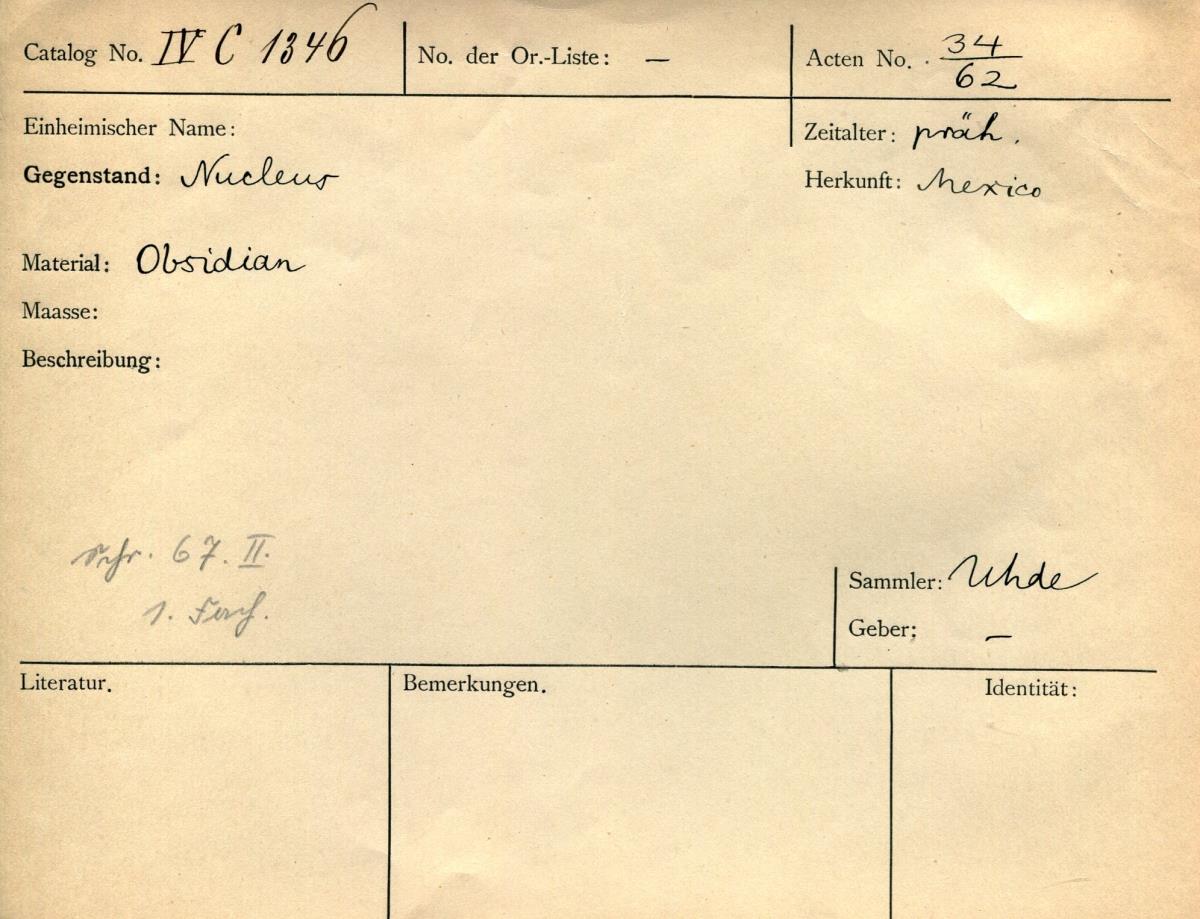 Catalog No. IV C 1346
No. der Or.-Liste: —
Acten No. 34/62
Einheimischer Name:
Zeitalter: präh.
Gegenstand: Nucleus
Herkunft: Mexico
Material: Obsidian
Maasse:
Beschreibung:
Schr. 67. II.
1. Fach.
Sammler: Uhde
Geber: —
Literatur.
Bemerkungen.
Identität: